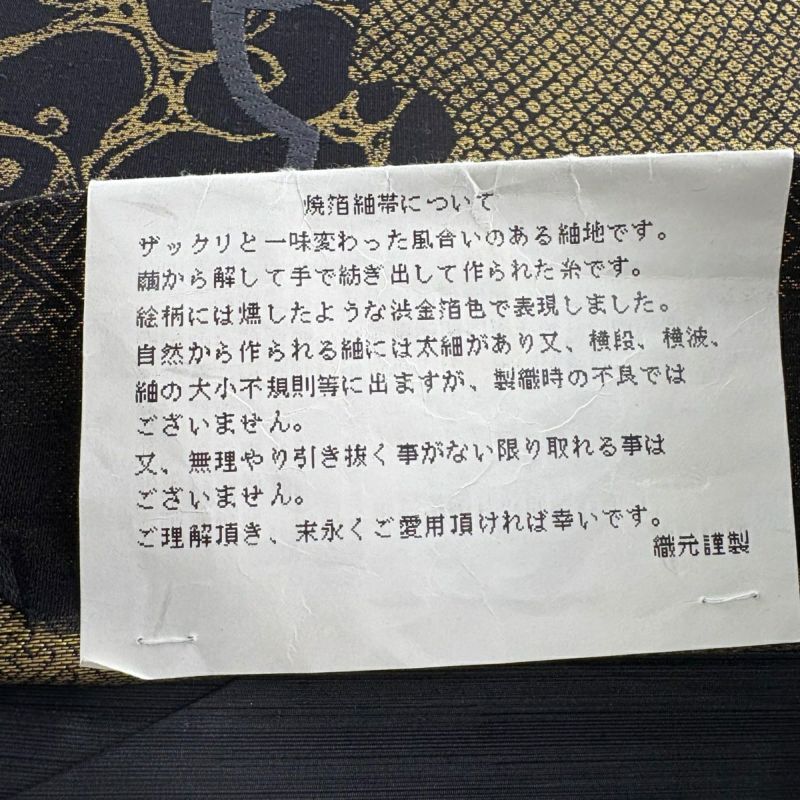 焼箔紬帯について
ザックリと一味変わった風合いのある紬地です。
繭から解して手で紡ぎ出して作られた糸です。
絵柄には燻したような渋金箔色で表現しました。
自然から作られる紬には太細があり又、横段、横波、
紬の大小不規則等に出ますが、製織時の不良では
ございません。
又、無理やり引き抜く事がない限り取れる事は
ございません。
ご理解頂き、末永くご愛用頂ければ幸いです。
織元謹製